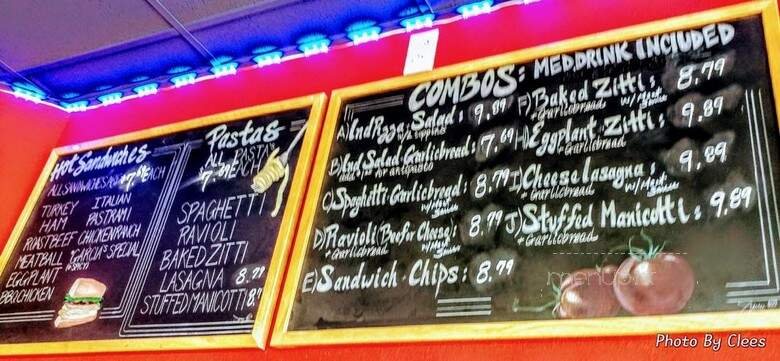 Hot Sandwiches
ALL SANDWICHES
TURKEY ITALIAN
HAM PASTRAMI
ROAST BEEF CHICKEN RANCH
MEATBALL "GARCIA" SPECIAL
EGGPLANT
BBQ CHICKEN
Pastas
ALL PASTA
EACH
SPAGHETTI
RAVIOLI
BAKED ZITI
LASAGNA
STUFFED MANICOTTI
COMBOS: MED DRINK INCLUDED
A) Ind Pizza Salad: 9.89
B) Ind Salad Garlicbread: 7.69
C) Spaghetti Garlicbread: 8.79
w/ Meat Sauce
D) Ravioli Beef or Cheese: 8.79
+ Garlicbread w/ Meat Sauce
E) Sandwich + Chips: 8.79
F) Baked Zitti: 8.79
+ Garlicbread w/ Meat Sauce
H) Eggplant Zitti: 9.89
+ Garlicbread
I) Cheese lasagna: 9.89
+ Garlicbread w/ Meat Sauce
J) Stuffed Manicotti: 9.89
+ Garlicbread
menupix
Photo By Clees